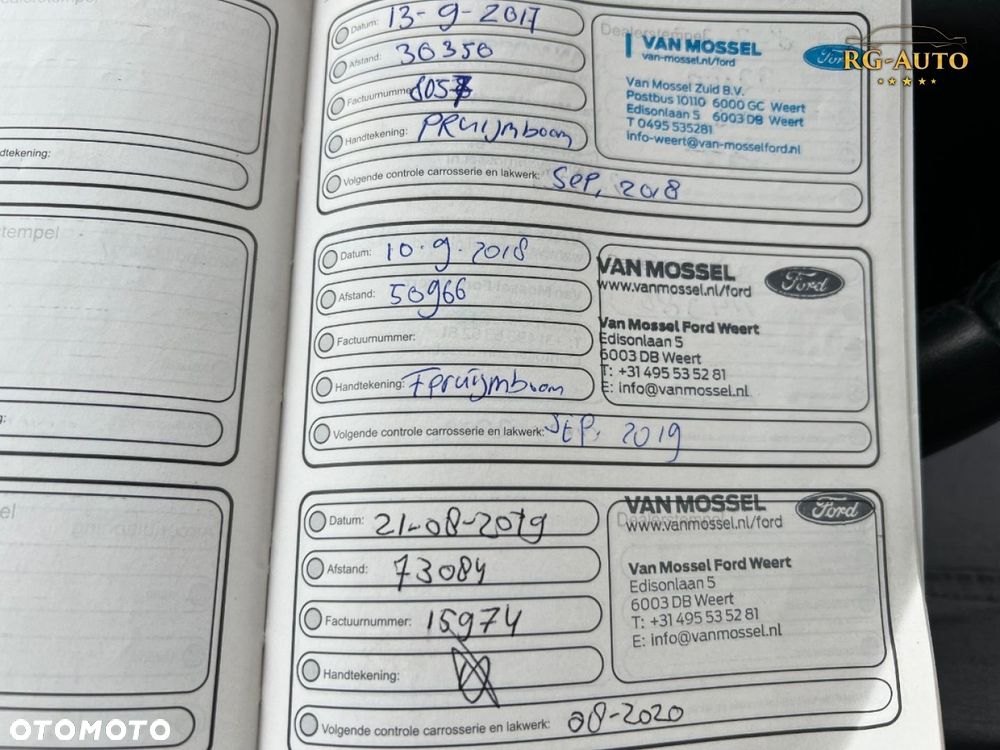 Datum: 13-9-2017
Afstand: 36350
Factuurnummer: 8057
Handtekening: PRuijmboom
Volgende controle carrosserie en lakwerk: Sep, 2018
Dealerstempel
VAN MOSSEL
van-mossel.nl/ford
Ford
Van Mossel Zuid B.V.
Postbus 10110 6000 GC Weert
Edisonlaan 5 6003 DB Weert
T 0495 535281
info-weert@van-mosselford.nl
RG-AUTO
dtekening:
tempel
Datum: 10-9-2018
Afstand: 50966
Factuurnummer:
Handtekening: Fpruijmboom
Volgende controle carrosserie en lakwerk: Sep, 2019
VAN MOSSEL
www.vanmossel.nl/ford
Ford
Van Mossel Ford Weert
Edisonlaan 5
6003 DB Weert
T: +31 495 53 52 81
E: info@vanmossel.nl
g:
el
Datum: 21-08-2019
Afstand: 73084
Factuurnummer: 15974
Handtekening:
Volgende controle carrosserie en lakwerk: 08-2020
VAN MOSSEL
www.vanmossel.nl/ford
Ford
Van Mossel Ford Weert
Edisonlaan 5
6003 DB Weert
T: +31 495 53 52 81
E: info@vanmossel.nl
OTOMOTO